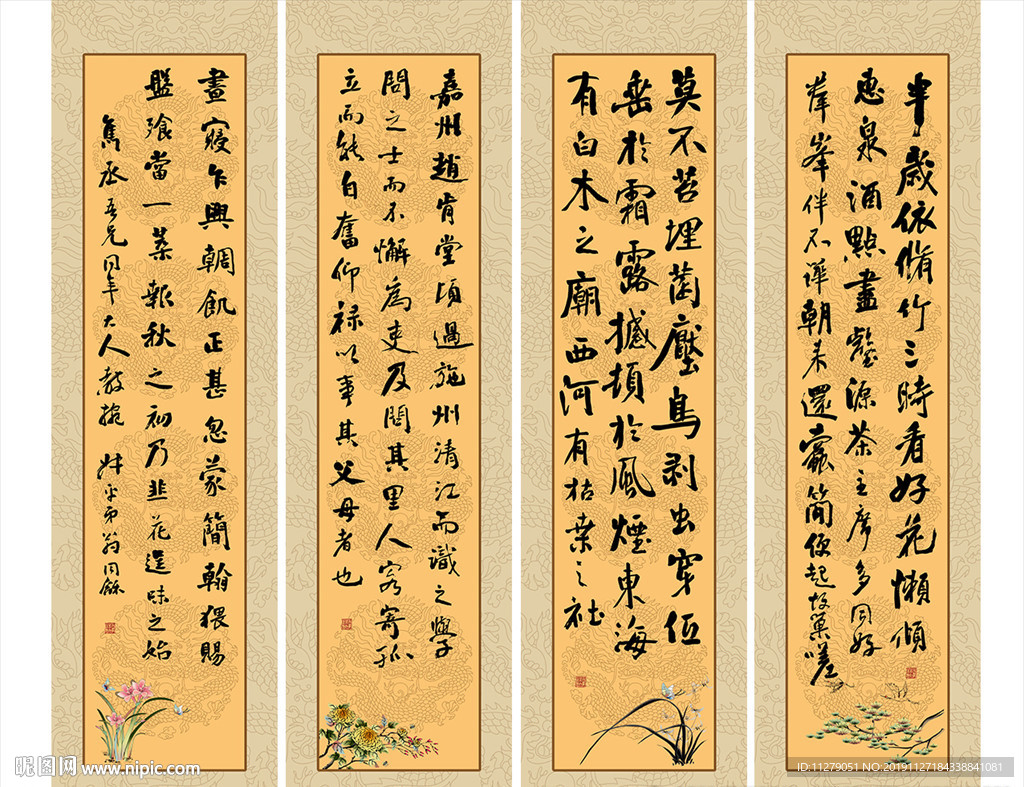 半歲依脩竹三時看好花懶傾
惠泉酒點盡壑源茶主席多同好
羣峯伴不譁朝來還蠹簡便起故巢嗟
莫不苔埋菌壓鳥剥虫穿低
垂於霜露撼頓於風煙東海
有白木之廟西河有枯桑之社
嘉州趙肯堂頃過施州清江而識之學
問之士而不懈爲吏及問其里人寄孤
立而能自奮仰禄以事其父母者也
晝寢乍興輖飢正甚忽蒙簡翰猥賜
盤飧當一葉報秋之初乃韭花逞味之始
隽丞吾兄同年大人教掞 叔平弟翁同龢
昵图网 www.nipic.com
ID:11279051 NO:20191127184338841081